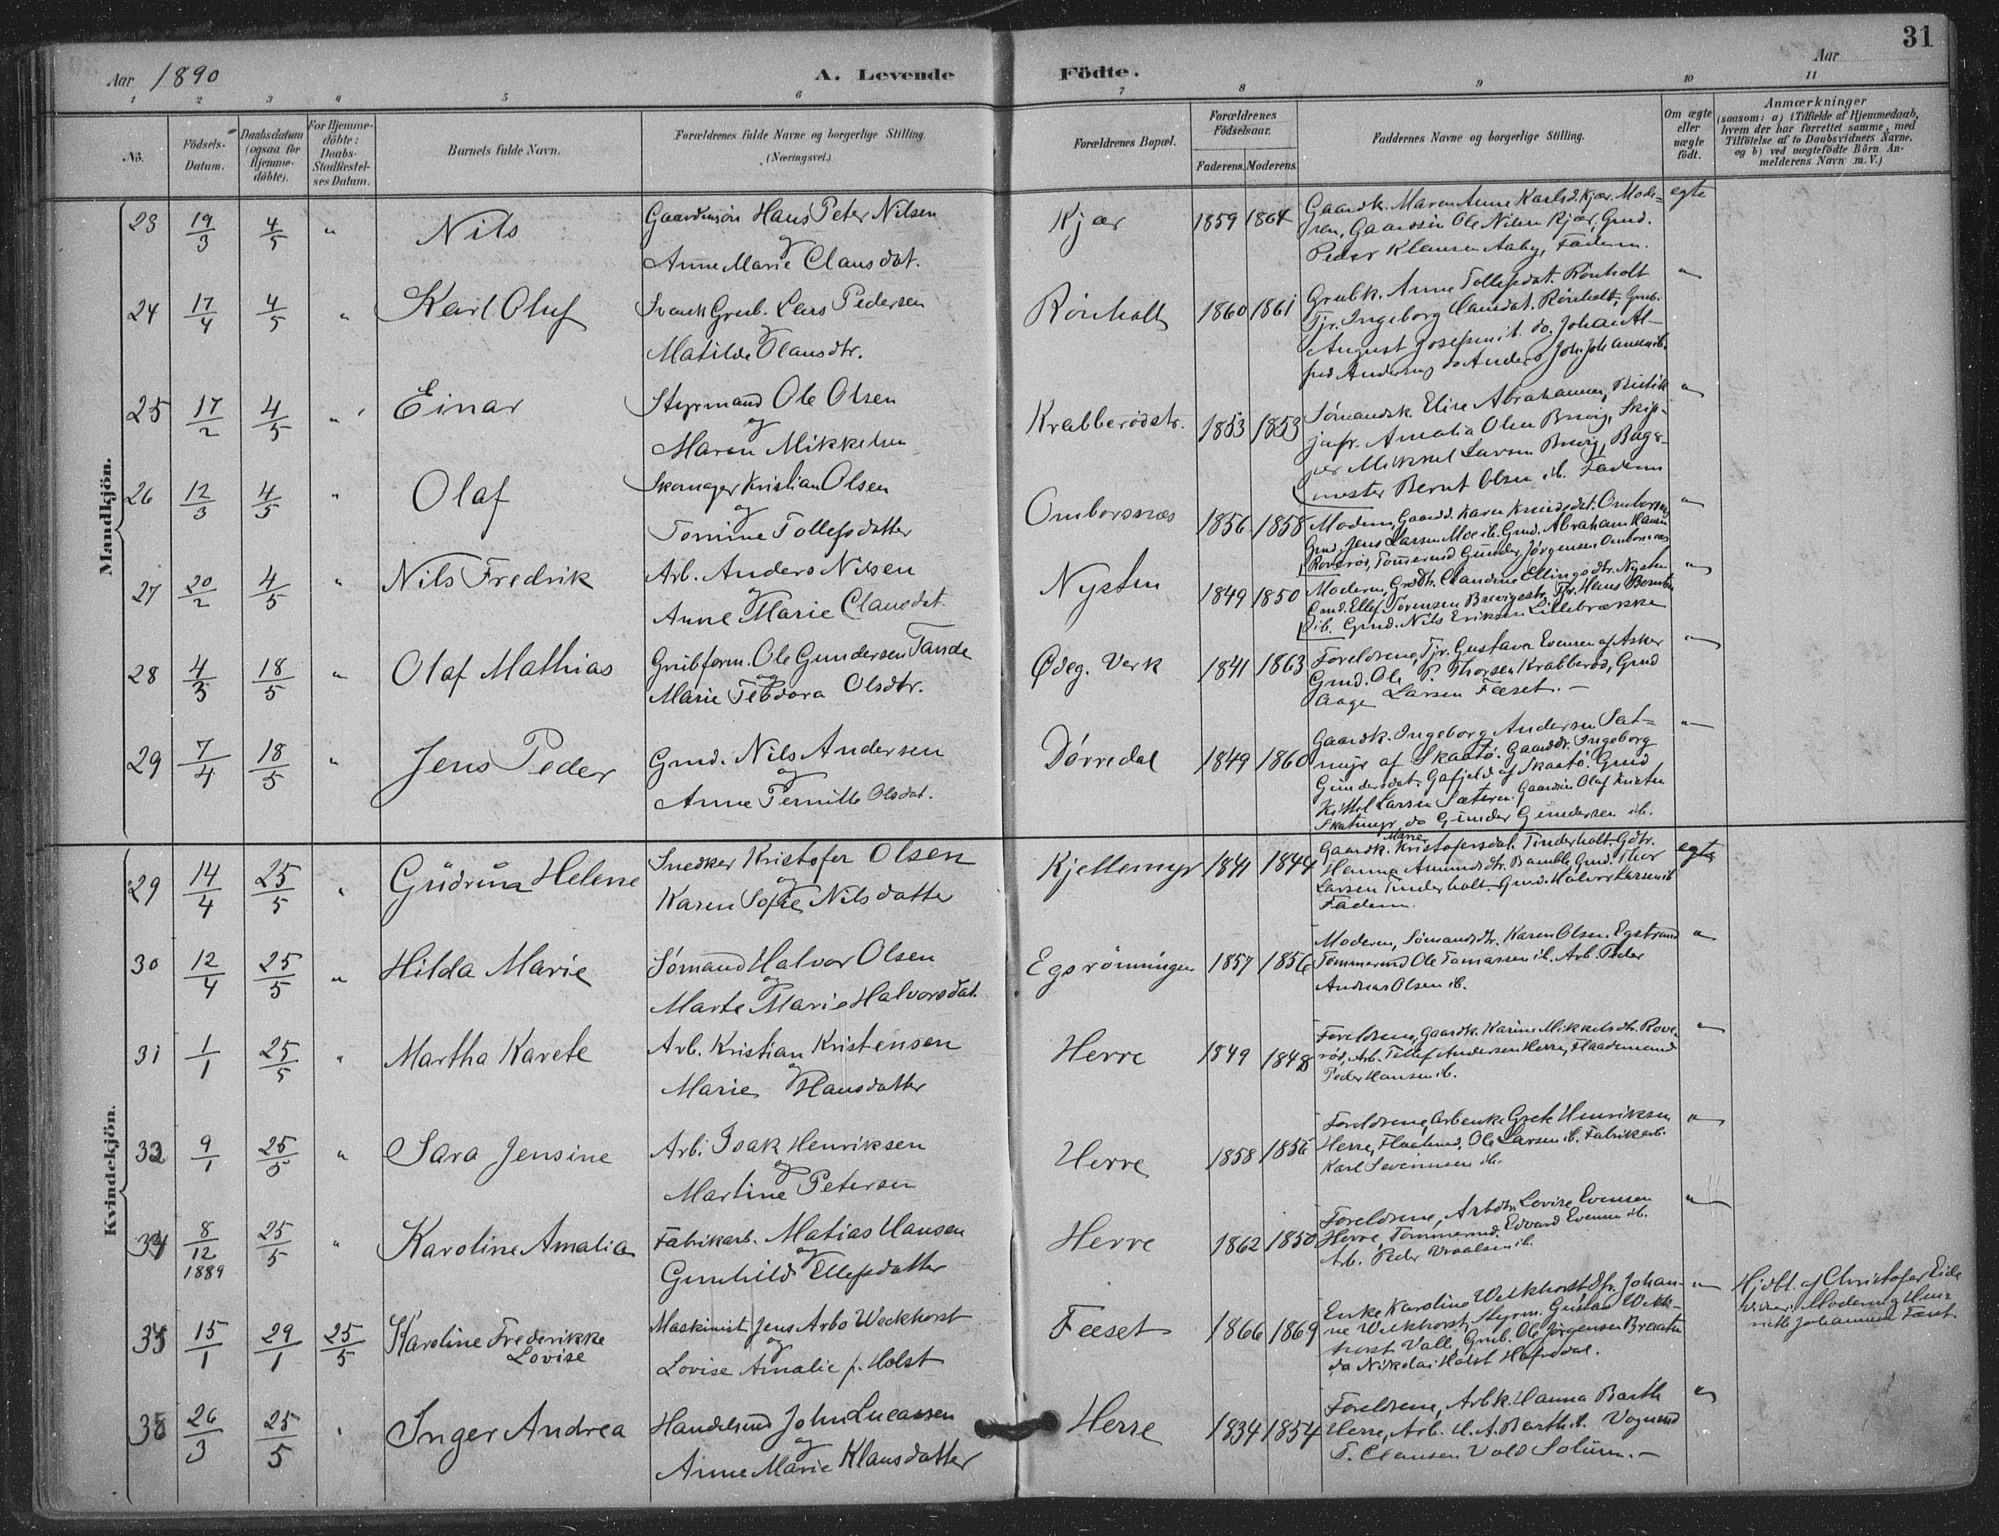 31
Aar 1890
A. Levende
Födte.
Aar
1 2 3 4 5 6 7 8 9 10 11
No.
Födsels-
Datum.
Daabsdatum
(ogsaa for
Hjemme-
döbte).
For Hjemme-
döbte:
Daabs-
Stadfæstel-
ses Datum.
Barnets fulde Navn.
Forældrenes fulde Navne og borgerlige Stilling.
(Næringsvei.)
Forældrenes Bopæl.
Forældrenes
Födselsaar.
Faderens. Moderens.
Faddernes Navne og borgerlige Stilling.
Om ægte
eller
uægte
födt.
Anmærkninger
(saasom: a) i Tilfælde af Hjemmedaab,
hvem der har forrettet samme, med
Tilföielse af to Daabsvidners Navne,
og b) ved uægtefödte Börn An-
melderens Navn m. V.)
Mandkjön.
23 19/3 4/5 " Nils
Gaardmsøn Hans Peter Nilsen
og
Anne Marie Clausdat.
Kjær 1859 1864
Gaardk. Maren Anne Karlsd. Kjær. Mode-
ren, Gaardsøn Ole Nilsen Kjær, Gmd.
Peder Klausen Aaby, Faderen.
egte
24 17/4 4/5 " Karl Oluf
Svensk Grub. Lars Pedersen
og
Matilde Olausdtr.
Rönholt 1860 1861
Grubk. Anne Tollefsdat. Rönholt
Tjr. Ingeborg Hansdat. Rønholt, Grub.
August Josefsen ib. do. Johan Al-
fred Andersen do Anders Joh. Johansen ib.
"
25 17/2 4/5 " Einar
Styrmand Ole Olsen
og
Maren Mikkelsen
Krabberødstr. 1853 1853
Sømandsk Elise Abrahamsen, Butik
jnfr. Amalia Olsen Brevig, Skip-
per Mikkel Larsen Brevig, Bager-
mester Bernt Olsen ib. Faderen
"
26 12/3 4/5 " Olaf
Skomager Kristian Olsen
og
Tomine Tollefsdatter
Omborsnæs 1856 1858
Moderen, Gaardd. Karen Knudsdat. Omborsnæs
Gmd. Jens Larsen Moe ib. Gmd. Abraham Hansen
Roverød, Tømmermd Gunder Jørgensen Omborsnæs
"
27 20/2 4/5 " Nils Fredrik
Arb. Anders Nilsen
og
Anne Marie Clausdat.
Nysten 1849 1850
Moderen, Grdtr. Claudine Ellingsdtr. Nysten
Gmd. Ellef Sørensen Brevigestr. Tjr. Hans
ib. Gmd. Nils Eriksen Lillebrække
"
28 4/3 18/5 " Olaf Mathias
Grubform. Ole Gundersen Tande
og
Marie Teodora Olsdtr.
Ødeg. Verk 1841 1863
Foreldrene, Tjr. Gustava Evensen af Asker
Gmd. Ole P. Thorsen Krabberød, Gmd
Aage Larsen Fæset.
"
29 7/4 18/5 " Jens Peder
Gmd. Nils Andersen
og
Anne Pernille Olsdat.
Dørredal 1849 1860
Gaardk. Ingeborg Andersen Sat-
myr af Skaatø. Gaarddr. Ingeborg
Gundersdat. Gafjeld af Skaatø. Gmd
Kittil Larsen Sæteren. Gaardsøn Olaf Kristen
Skatmyr, do Gunder Gundersen ib.
"
Kvindekjön.
29 14/4 25/5 " Gudrun Helene
Snedker Kristofer Olsen
og
Karen Sofie Nilsdatter
Kjellemyr 1841 1844
Marie
Gaardk. Kristofersdat. Tinderholt. Gdtr.
Hanna Amundsdtr. Bamble, Gmd. Thor
Larsen Tinderholt. Gmd. Halvor Larsen ib
Faderen.
egte
30 12/4 25/5 " Hilda Marie
Sømand Halvor Olsen
og
Marte Marie Halvorsdat.
Egsrønningen 1857 1856
Moderen, Sømandsdtr. Karen Olsen. Egstrand
Tømmermd Ole Tomassen ib. Arb. Peder
Andreas Olsen ib.
"
31 1/1 25/5 " Martha Karete
Arb. Kristian Kristensen
og
Marie Hansdatter
Herre 1849 1848
Foreldrene, Gaardk. Karine Mikkelsdtr. Rove-
rød, Arb. Tollef Andersen Herre, Flaademand
Peder Hansen ib.
"
32 9/1 25/5 " Sara Jensine
Arb. Isak Henriksen
og
Martine Petersen
Herre 1858 1856
Foreldrene, Arbenke Grete Henriksen
Herre, Flaademd. Ole Larsen ib. Fabrikarb.
Karl Severinsen ib.
"
34 8/12 1889 25/5 " Karoline Amalia
Fabrikarb. Matias Hansen
og
Gunhild Ellefsdatter
Herre 1862 1850
Foreldrene, Arbdtr. Lovise Evensen
Herre, Tømmermd. Edvard Evensen ib.
Arb. Peder Vraalsen ib.
"
35 15/1 29/1 25/5 Karoline Frederikke
Lovise
Maskinist Jens Arbo Weckhorst
og
Lovise Amalie f. Holst
Fæset 1866 1869
Enke Karoline Welkhorst Dtr. Johan-
ne Welkhorst, Styrm. Gustav Welk-
horst Valle, Grub. Ole Jørgensen Braaten
do Nikolai Holst Hafsdal.
"
Hjdbt. af Christofer Eide
Vidner: Moderen og Hen-
rikke Johannesen Fæset.
36 26/3 25/5 " Inger Andrea
Handelsmd John Lucassen
og
Anne Marie Klausdatter
Herre 1834 1854
Foreldrene, Arbk. Hanna Barth
Herre, Arb. H. A. Barth ib. Vognmd
T. Clausen Vold Solum.
"